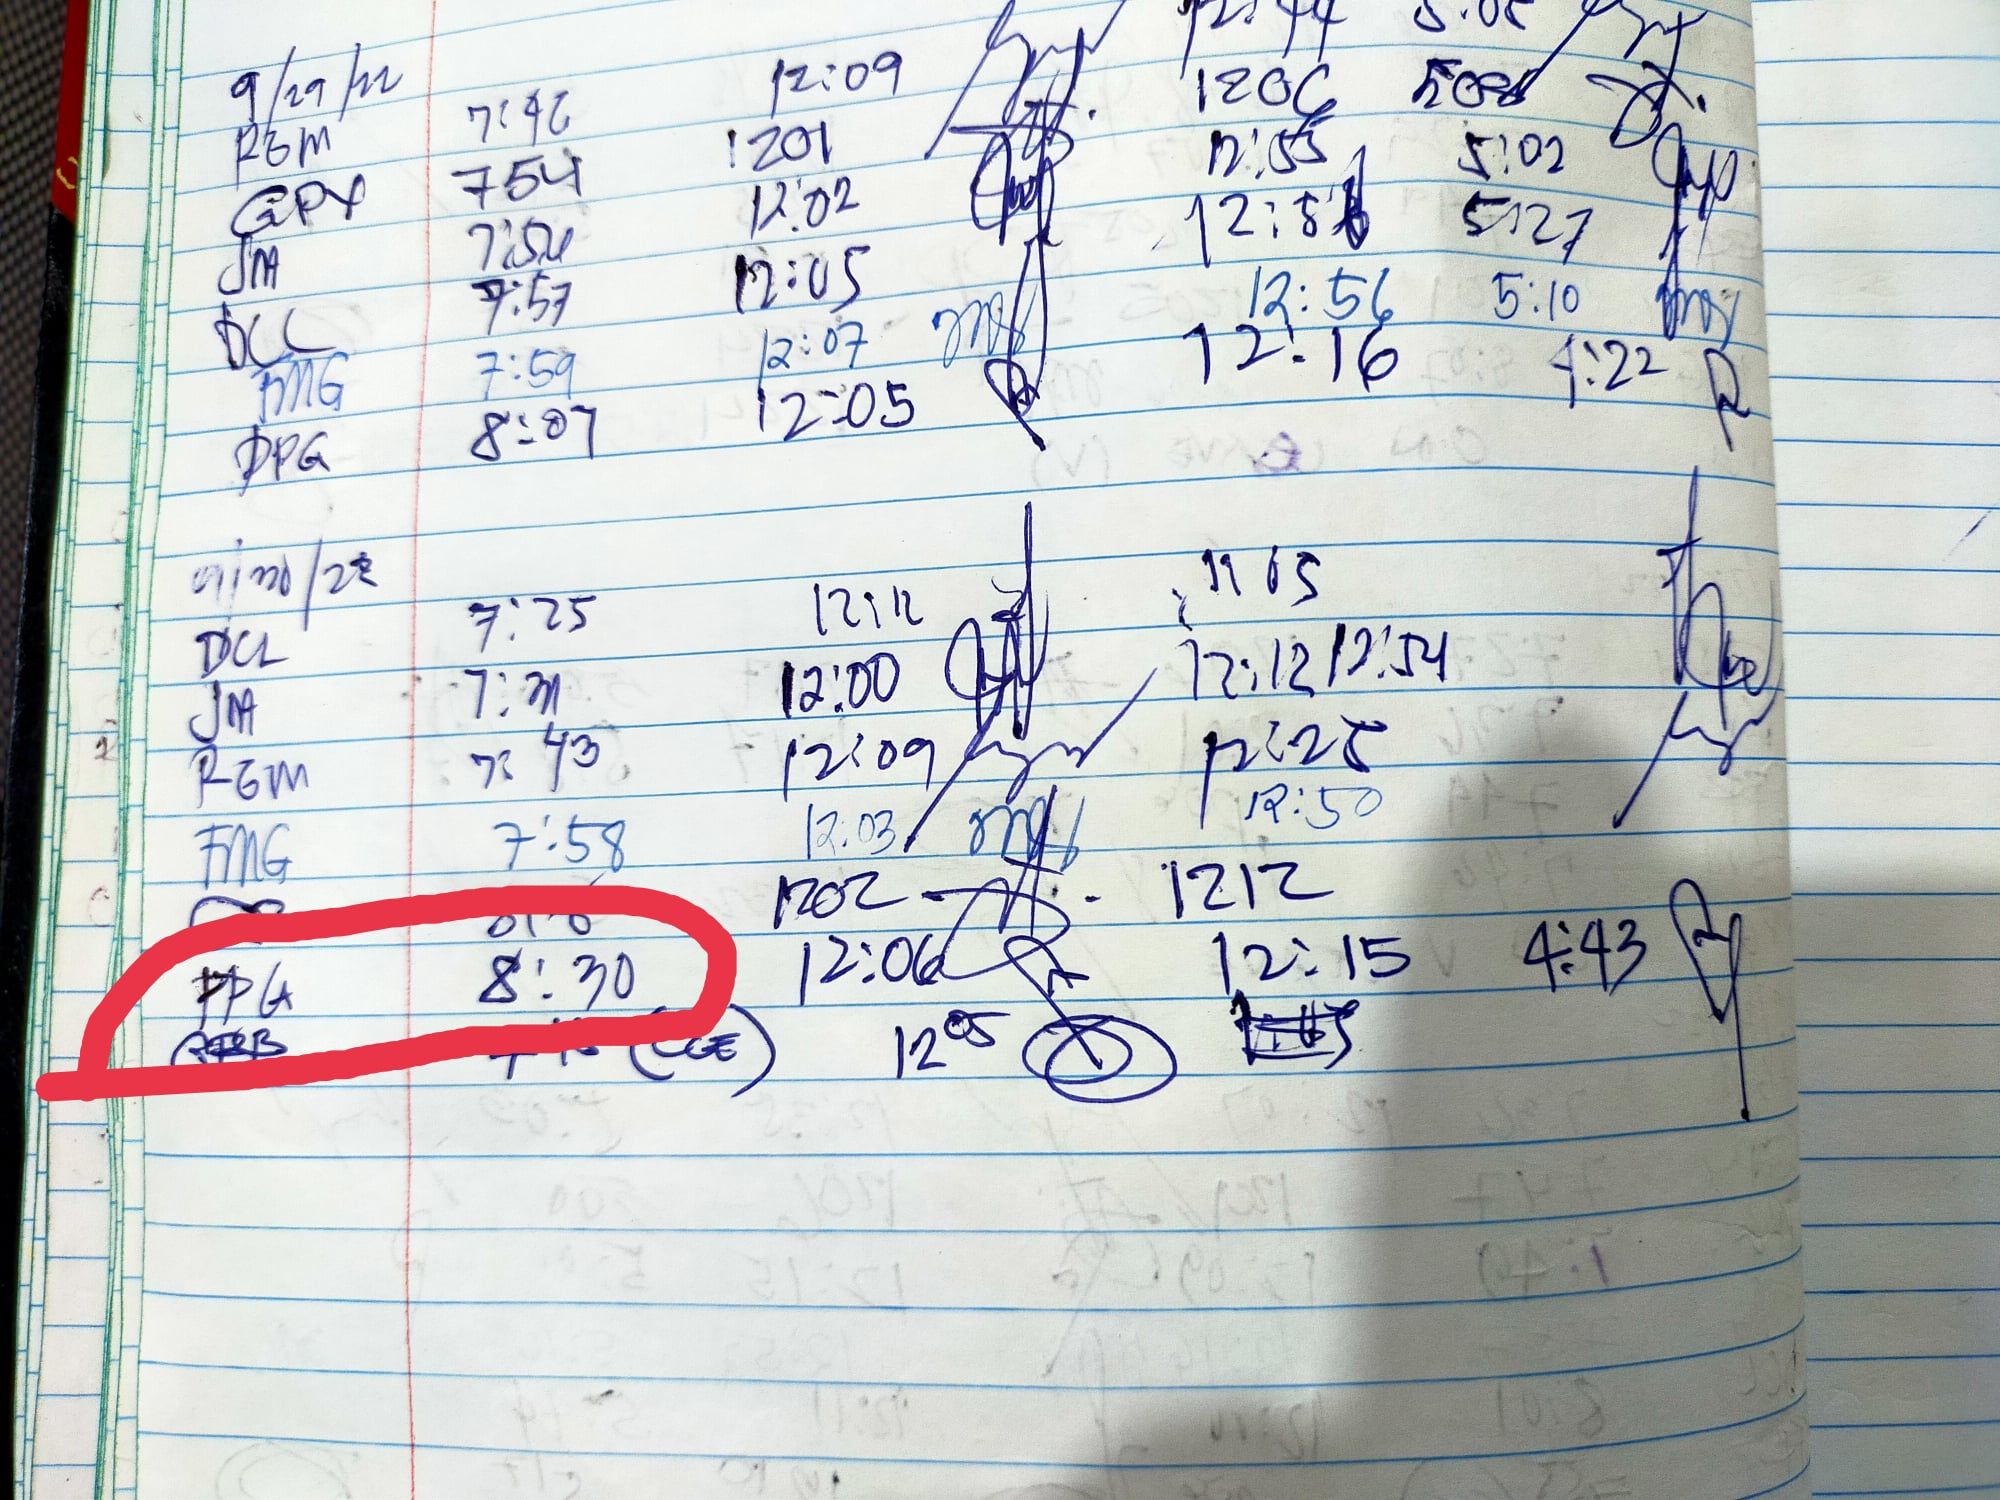 12:44 5:08
9/29/22
RGM 7:46 12:09 1206 508
GPY 754 1201 12:55 5:02
JM 7:54 12:02 12:58 5:27
DCL 7:57 12:05
FMG 7:59 12:07 12:56 5:10
DPG 8:07 12:05 12:16 4:22
09/30/22
DCL 7:25 12:12
JM 7:31 12:00 12:12 12:54
RGM 7:43 12:09 12:28
FMG 7:58 12:03 12:50
1202 1212
DPG 8:30 12:06 12:15 4:43
(CGE) 1205